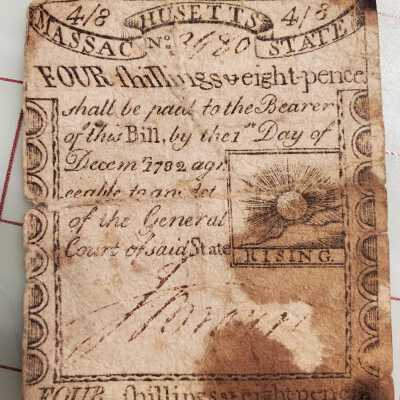 4/8 HUSETTS 4/8
MASSAC No: 2980 STATE
FOUR shillings & eight-pence
shall be paid to the Bearer
of this Bill, by the 1st Day of
Decemr 1782 agre
eeable to an Act
of the General
Court of said State
RISING.
FOUR shillings & eight-pence